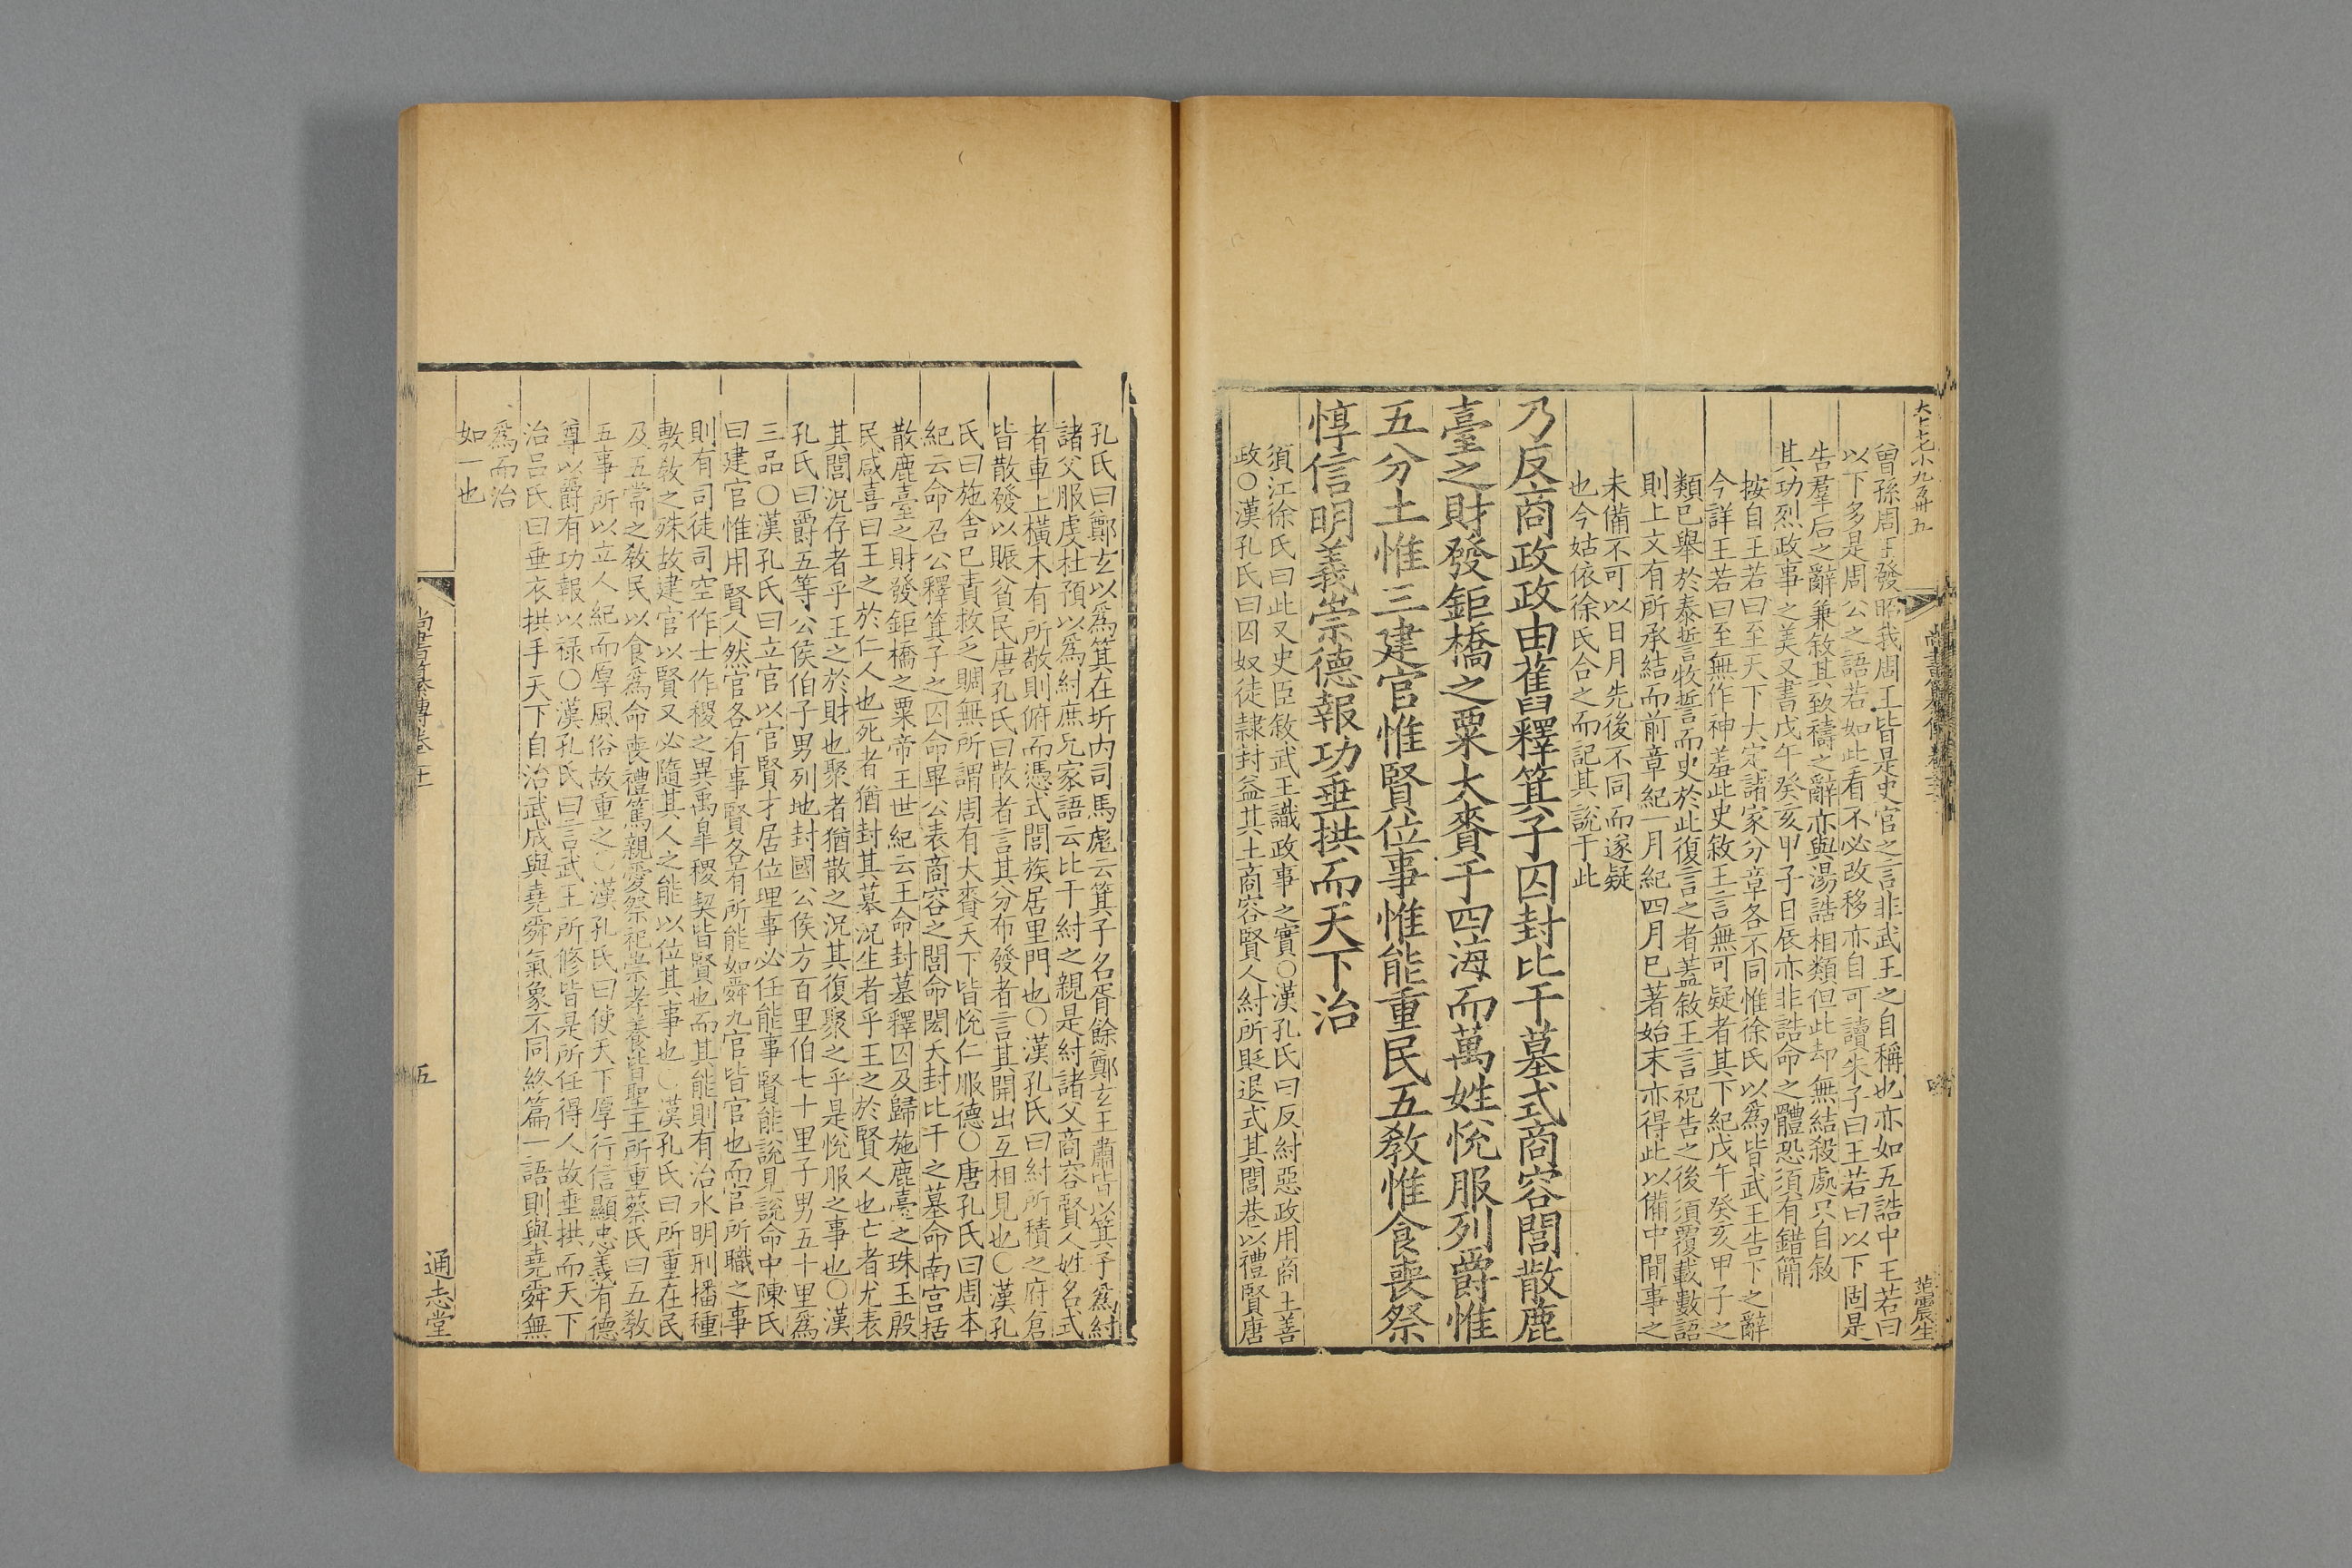 大七十七小九百卅五
曾孫周王發昭我周王皆是史官之言非武王之自稱也亦如五誥中王若曰
以下多是周公之語若如此看不必改移亦自可讀朱子曰王若曰以下固是
告羣后之辭兼敘其致禱之辭亦與湯誥相類但此却無結殺處只自敘
其功烈政事之美又書戊午癸亥甲子日辰亦非誥命之體恐須有錯簡
按自王若曰至天下大定諸家分章各不同惟徐氏以為皆武王告下之辭
今詳王若曰至無作神羞此史敘王言無可疑者其下紀戊午癸亥甲子之
類已舉於泰誓牧誓而史於此復言之者蓋敘王言祝告之後須覆載數語
則上文有所承結而前章紀一月紀四月巳著始末亦得此以備中間事之
未備不可以日月先後不同而遂疑
也今姑依徐氏合之而記其說于此
乃反商政政由舊釋箕子囚封比干墓式商容閭散鹿
臺之財發鉅橋之粟大賚于四海而萬姓悅服列爵惟
五分土惟三建官惟賢位事惟能重民五敎惟食喪祭
惇信明義崇德報功垂拱而天下治
須江徐氏曰此又史臣敘武王識政事之實○漢孔氏曰反紂惡政用商王善
政○漢孔氏曰囚奴徒隷封益其土商容賢人紂所貶退式其閭巷以禮賢唐
范震生
孔氏曰鄭玄以爲箕在圻內司馬彪云箕子名胥餘鄭玄王肅皆以箕子爲紂
諸父服虔杜預以爲紂庶兄家語云比干紂之親是紂諸父商容賢人姓名式
者車上橫木有所敬則俯而憑式閭族居里門也○漢孔氏曰紂所積之府倉
皆散發以賑貧民唐孔氏曰散者言其分布發者言其開出互相見也○漢孔
氏曰施舍已責救乏賙無所謂周有大賚天下皆悅仁服德○唐孔氏曰周本
紀云命召公釋箕子之囚命畢公表商容之閭命閎夭封比干之墓命南宮括
散鹿臺之財發鉅橋之粟帝王世紀云王命封墓釋囚及歸施鹿臺之珠玉殷
民咸喜曰王之於仁人也死者猶封其墓況生者乎王之於賢人也亡者尤表
其閭況存者乎王之於財也聚者猶散之況其復聚之乎是悅服之事也○漢
孔氏曰爵五等公侯伯子男列地封國公侯方百里伯七十里子男五十里爲
三品○漢孔氏曰立官以官賢才居位理事必任能事賢能說見說命中陳氏
曰建官惟用賢人然官各有事賢各有所能如舜九官皆官也而官所職之事
則有司徒司空作士作稷之異禹皐稷契皆賢也而其能則有治水明刑播種
敷敎之殊故建官以賢又必隨其人之能以位其事也○漢孔氏曰所重在民
及五常之敎民以食爲命喪禮篤親愛祭祀崇孝養皆聖王所重蔡氏曰五敎
五事所以立人紀而厚風俗故重之○漢孔氏曰使天下厚行信顯忠義有德
尊以爵有功報以祿○漢孔氏曰言武王所修皆是所任得人故垂拱而天下
治呂氏曰垂衣拱手天下自治武成與堯舜氣象不同終篇一語則與堯舜無
爲而治
如一也
五
通志堂